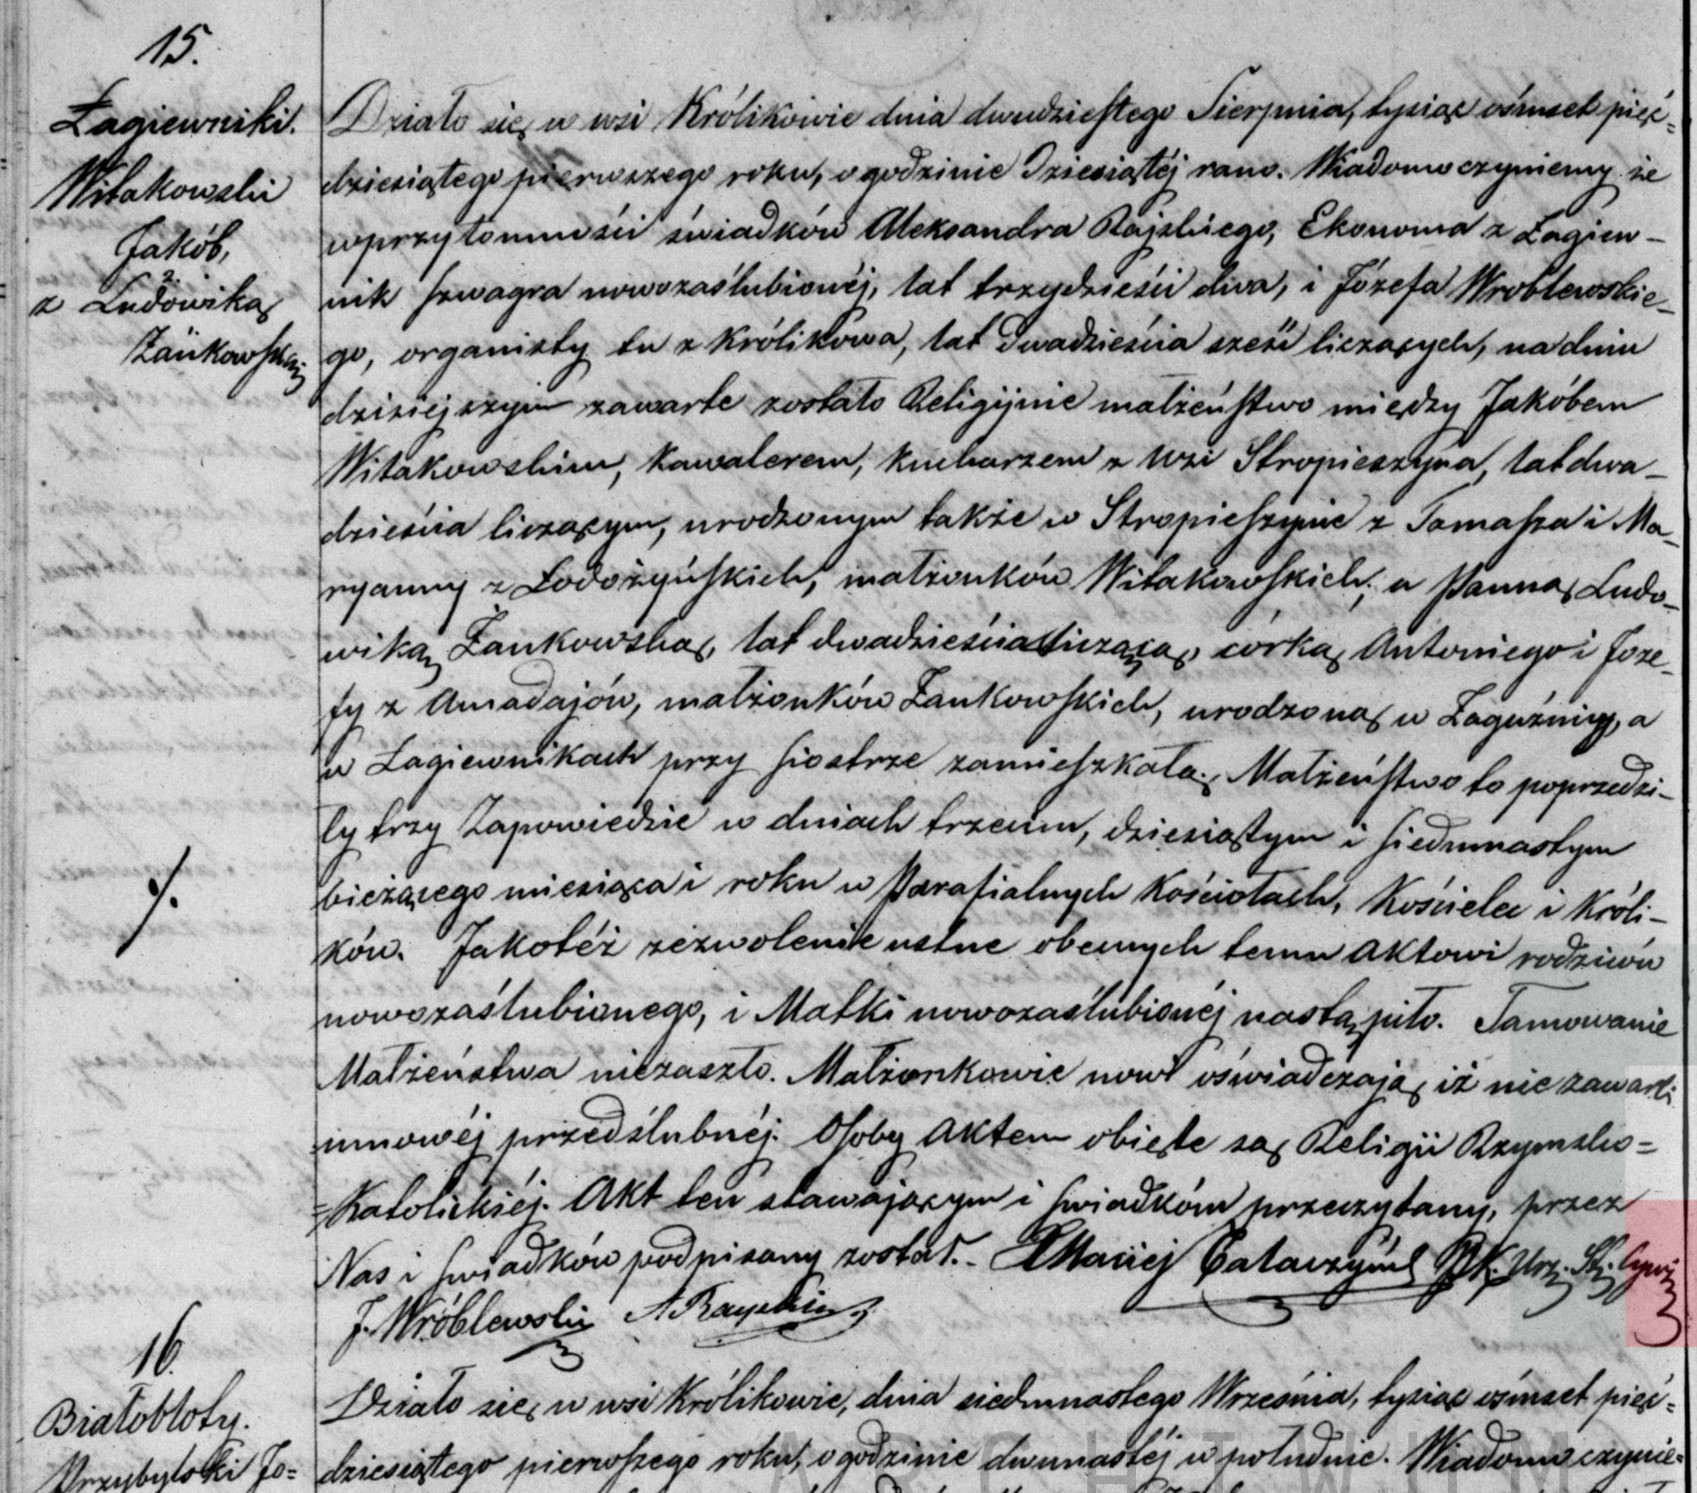 15.
Łagiewniki.
Witakowski
Jakób,
z
z Ludowiką
Żankowską
Działo się w wsi Królikowie dnia dwudziestego Sierpnia, tysiąc ośmset pięć=
dziesiątego pierwszego roku, o godzinie Dziesiątéj rano. Wiadomo czyniemy że
w przytomności świadków Aleksandra Rajskiego, Ekonoma z Łagiew-
nik szwagra nowozaślubionéj, lat trzydzieści dwa, i Józefa Wroblewskie-
go, organisty tu z Królikowa, lat Dwadzieścia sześć liczących, na dniu
dzisiejszym zawarte zostało Religijnie małżeństwo między Jakóbem
Witakowskim, Kawalerem, kucharzem z wsi Stropieszyna, lat dwa-
dzieścia liczącym, urodzonym także w Stropieszynie z Tomasza i Ma-
ryanny z Łodożyńskich, małżonków Witakowskich; a Panną Ludo-
wiką Żankowską, lat dwadzieścia liczącą, córką Antoniego i Joze-
fy z Amadajów, małżonków Żankowskich, urodzoną w a
w Łagiewnikach przy siostrze zamieszkałą. Małżeństwo to poprzedzi-
ły trzy Zapowiedzie w dniach trzecim, dziesiątym i siedmnastym
bieżącego miesiąca i roku w Parafialnych Kościołach, Kościelec i Króli-
ków. Jakotéż zezwolenie ustne obecnych temu Aktowi rodziców
nowozaślubionego, i Matki nowozaślubionéj nastąpiło. Tamowanie
Małżeństwa niezaszło. Małżonkowie nowi oświadczają iż nie zawarli
umowéj przedślubnéj. Osoby Aktem objęte są Religii Rzymsko=
=Katolickiéj. Akt ten stawającym i świadkóm przeczytany, przez
Nas i świadków podpisany został. - X Maciej P.K. Urz. St. Cywi
J. Wróblewski A. Rayski
16.
Białobłoty.
Przybylski Jo=
Działo się w wsi Królikowie, dnia siedmnastego Września, tysiąc ośmset pięć=
dziesiątego pierwszego roku, o godzinie dwunastéj w południe. Wiadomo czynie=